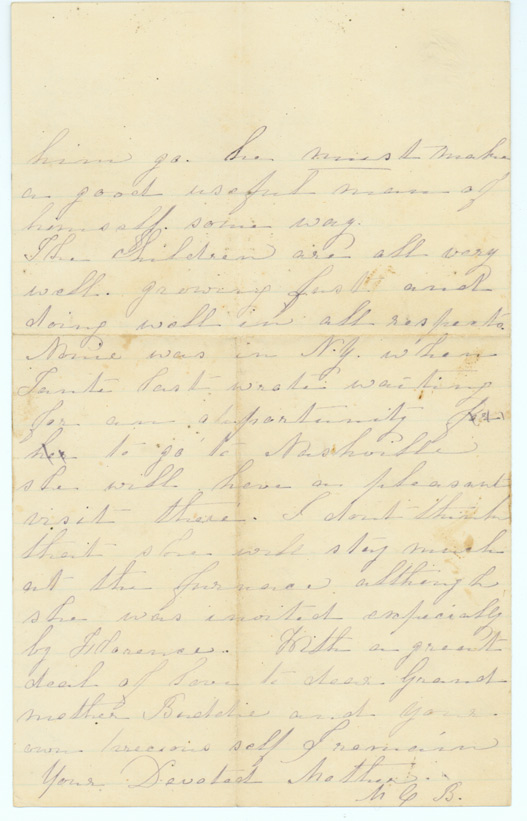 him go. he must make
a good useful man of
himself some way.
The Children are all very
well. growing fast and
doing well in all respects.
Nonie was in N.Y. when
Tante last wrote waiting
for an opportunity for
her to go to Nashville
she will have a pleasant
visit there. I dont think
that she will stay much
at the furnace although
she was invited especially
by Florence. With a great
deal of love to dear Grand
mother Buddie and your
own precious self I remain
Your Devoted Mother
M C B.